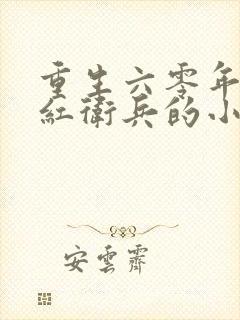 重生六零年
红衛兵的小
安雲霽